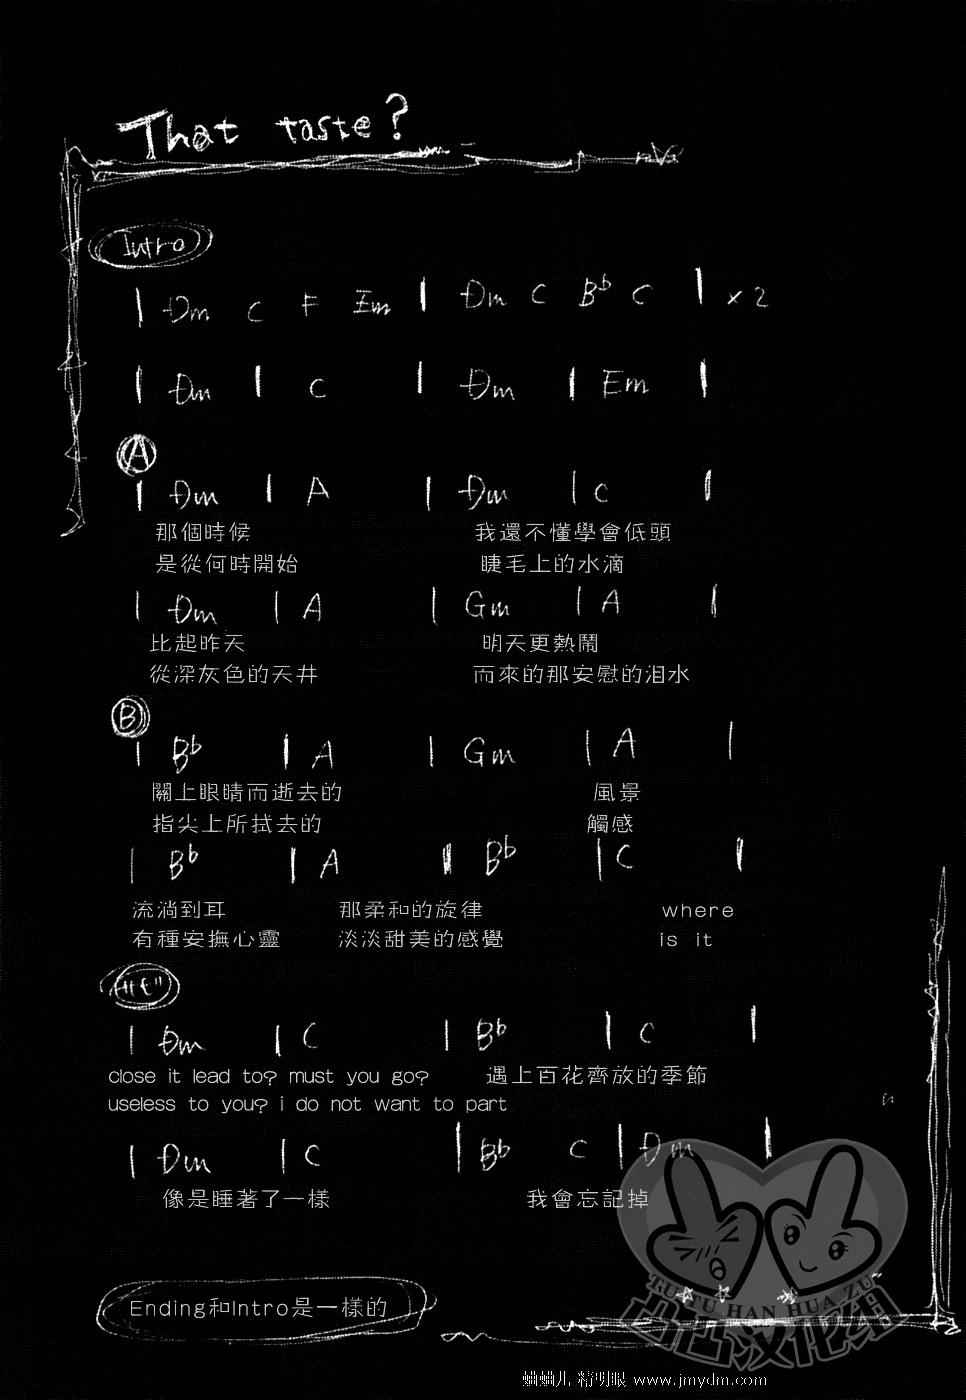 That taste?
Intro
| Dm C F Em | Dm C B♭ C | ×2
| Dm | C | Dm | Em |
A
| Dm | A | Dm | C |
那個時候 我還不懂學會低頭
是從何時開始 睫毛上的水滴
| Dm | A | Gm | A |
比起昨天 明天更熱鬧
從深灰色的天井 而來的那安慰的泪水
B
| B♭ | A | Gm | A |
闗上眼晴而逝去的 風景
指尖上所拭去的 觸感
| B♭ | A | B♭ | C |
流淌到耳 那柔和的旋律 where
有種安撫心靈 淡淡甜美的感覺 is it
サビ
| Dm | C | B♭ | C |
close it lead to? must you go? 遇上百花齊放的季節
useless to you? i do not want to part
| Dm | C | B♭ C | Dm |
像是睡著了一樣 我會忘記掉
Ending和Intro是一樣的
TU TU HAN HUA ZU
精明眼 www.jmydm.com